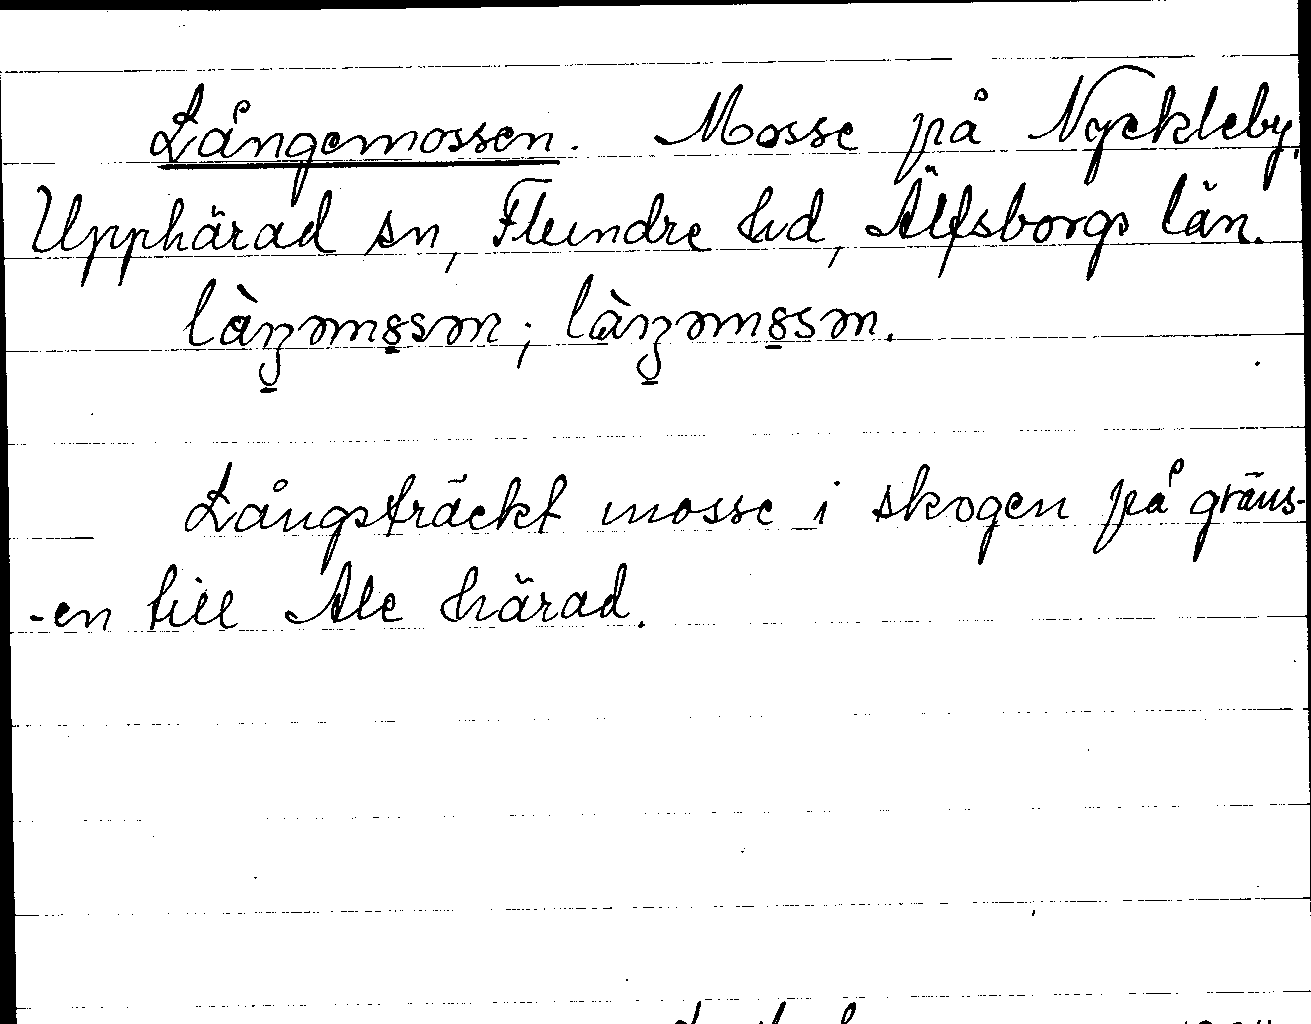 Långemossen. Mosse på Nyckleby,
Upphärad sn, Flundre hd, Älfsborgs län.
làŋəmo̱sən; làŋəmo̱sən.
Långsträckt mosse i skogen på gräns-
-en till Ale härad.